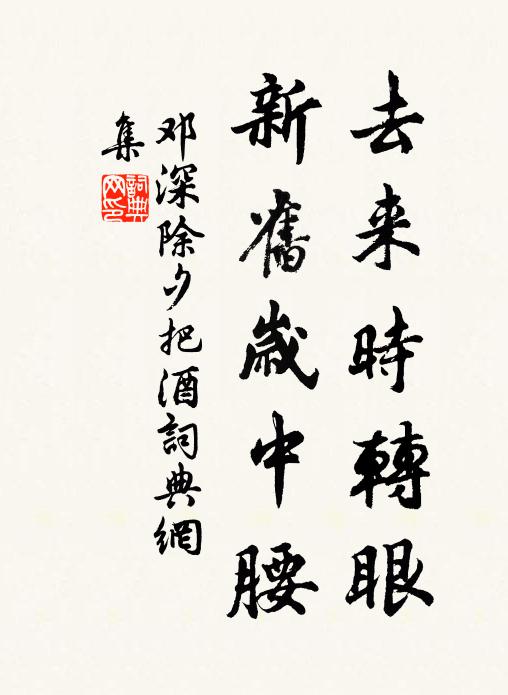 去来時轉眼
新舊歲中腰
邓深除夕把酒詞典網
集
詞典
网印